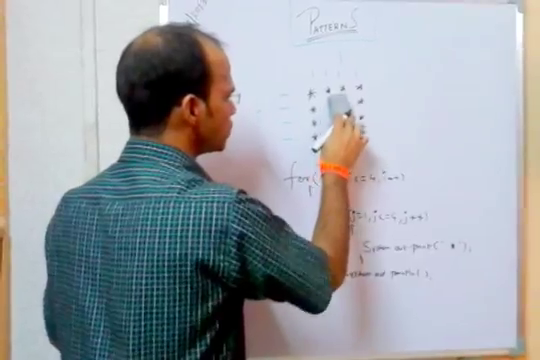 PATTERNS
* * * *
* *
* *
* *
for( i<=4, i++)
j=1, j<=4, j++)
System.out.print(" * ");
println( );